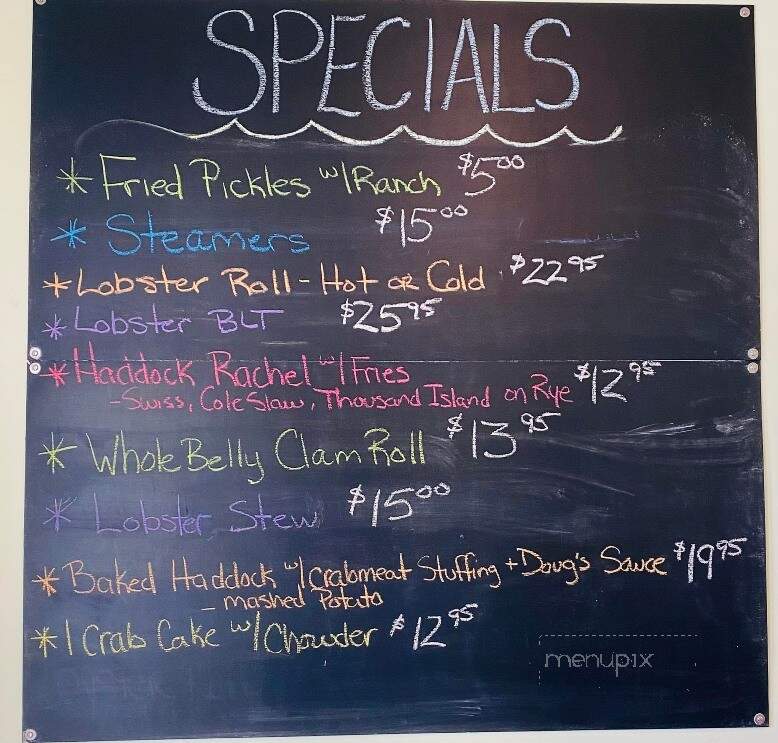 SPECIALS
* Fried Pickles w/ Ranch $5.00
* Steamers $15.00
* Lobster Roll - Hot or Cold $22.95
* Lobster BLT $25.95
* Haddock Rachel w/ Fries $12.95
- Swiss, Cole Slaw, Thousand Island on Rye
* Whole Belly Clam Roll $13.95
* Lobster Stew $15.00
* Baked Haddock w/ crabmeat Stuffing + Doug's Sauce $19.95
- mashed Potato
* 1 Crab Cake w/ Chowder $12.95
menupix